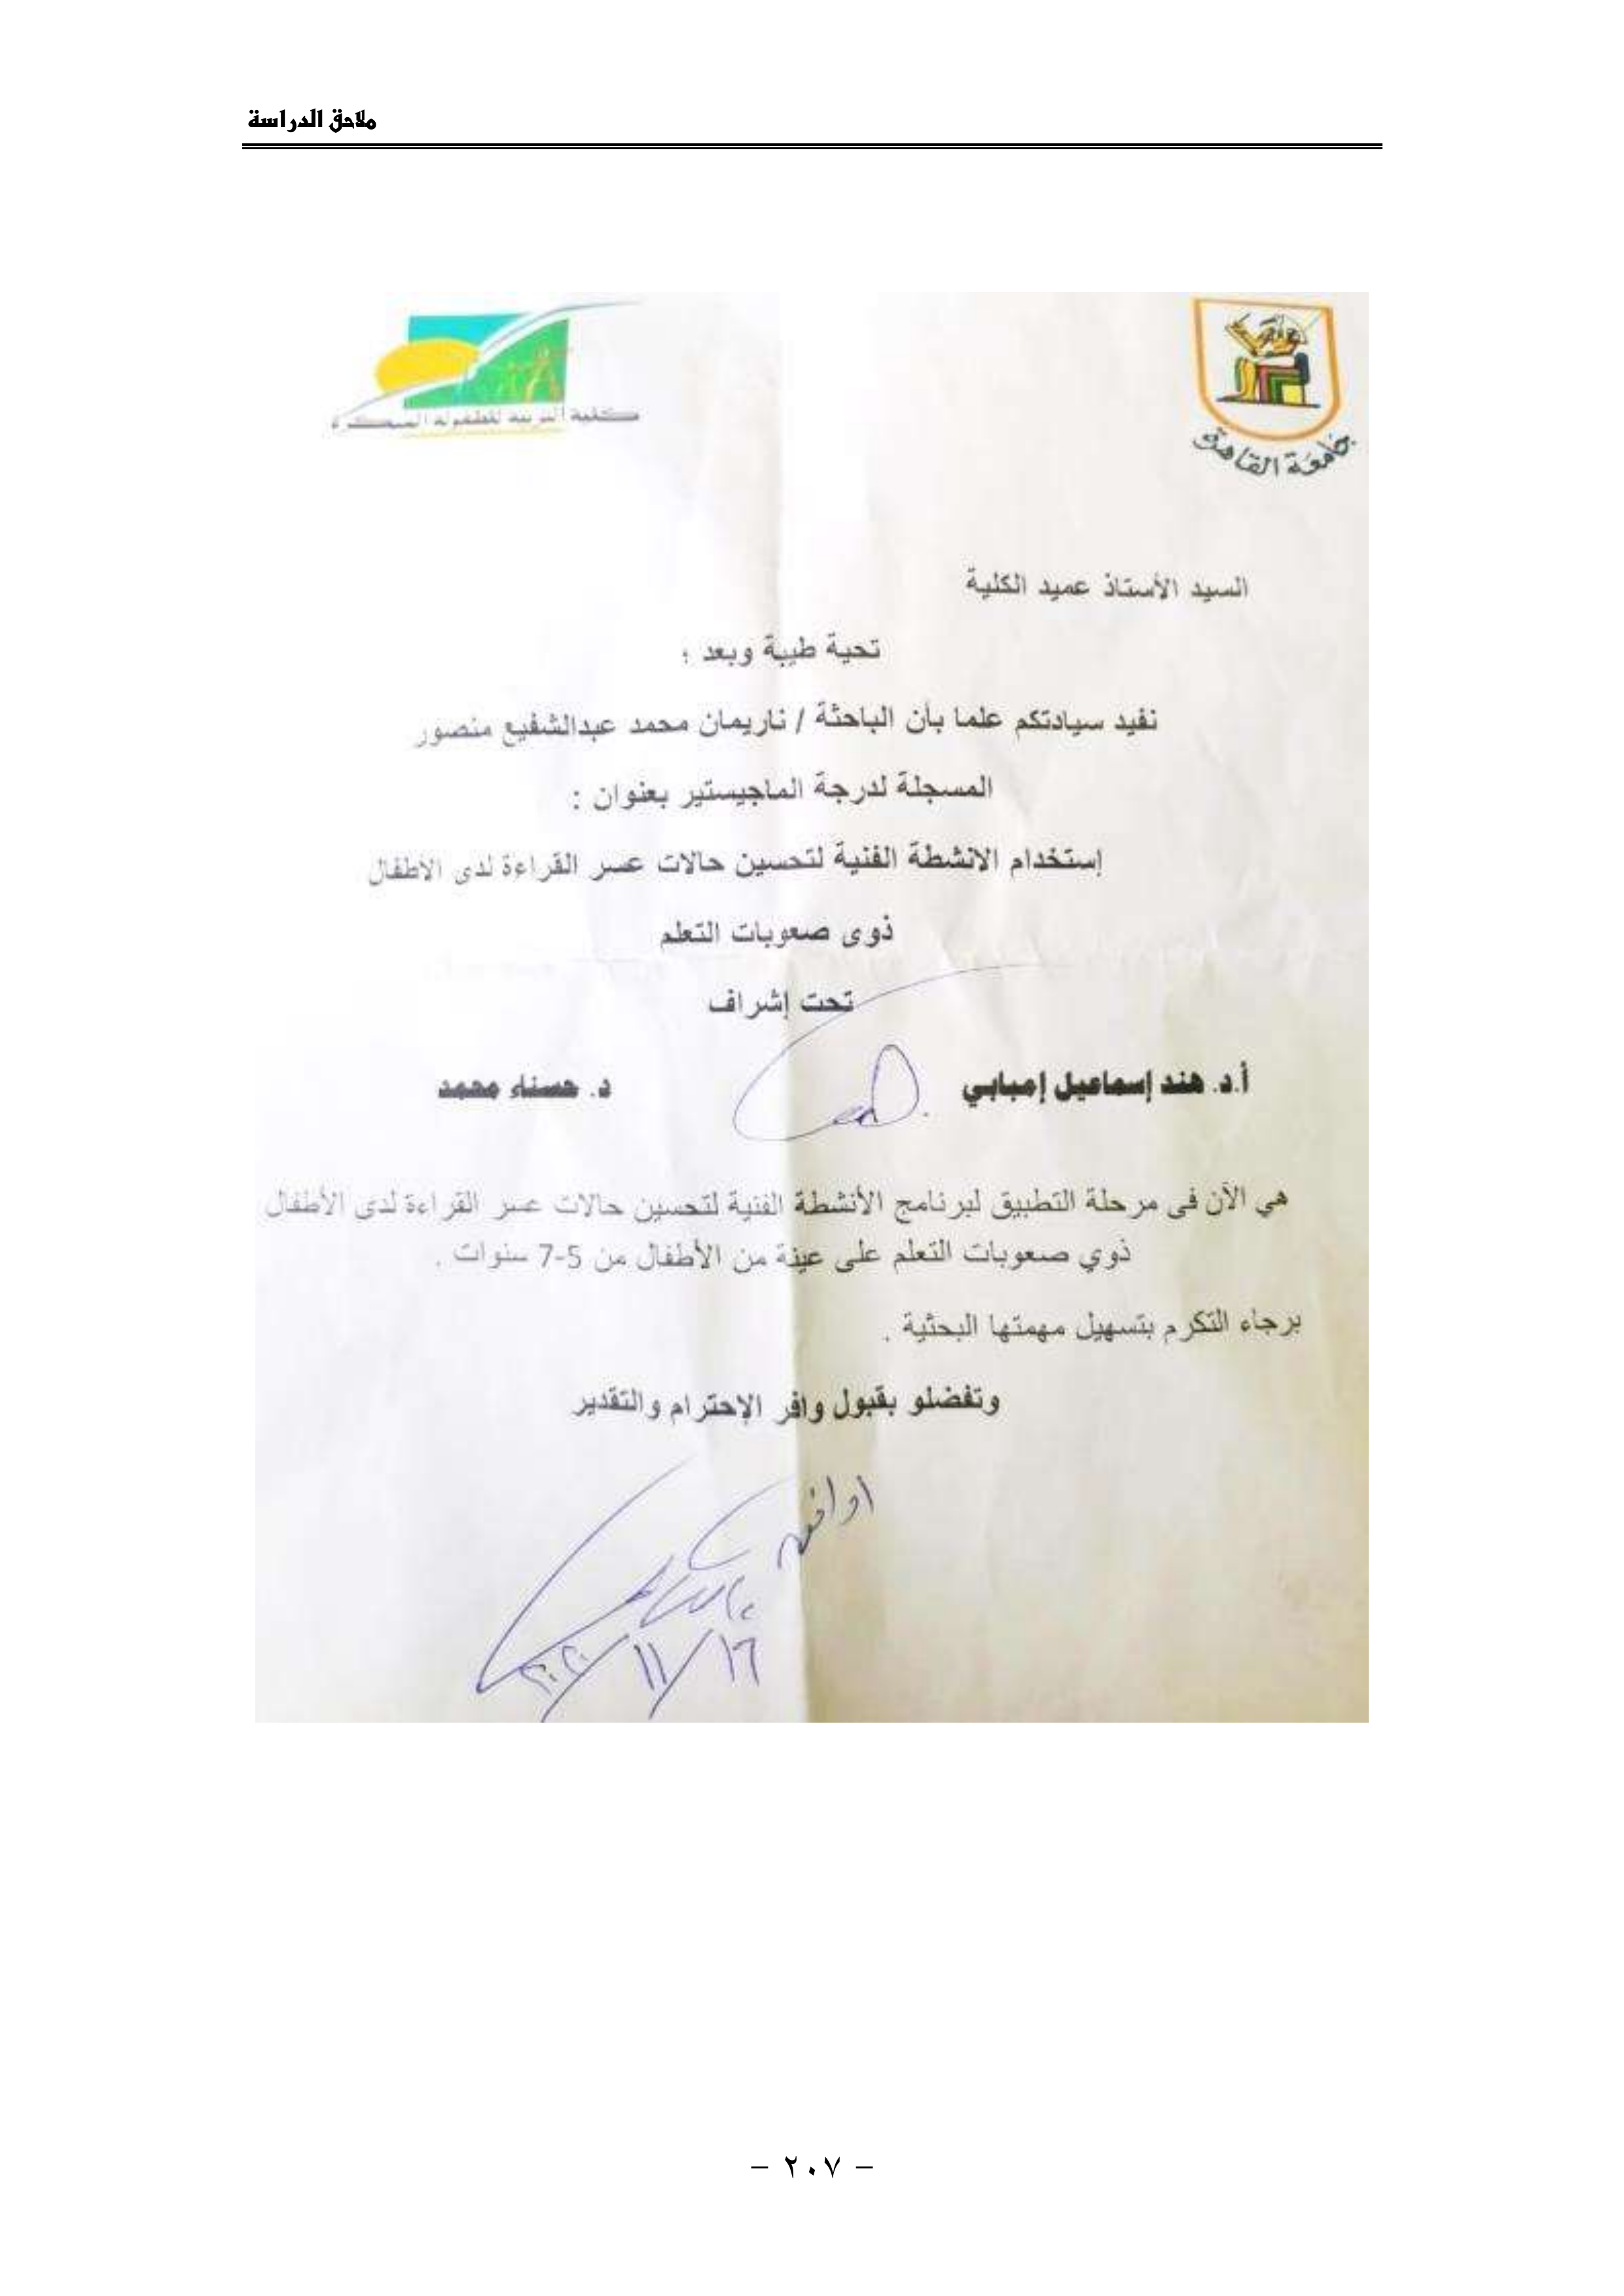 ملاحق الدراسة
كلية التربية للطفولة المبكرة
جامعة القاهرة
السيد الأستاذ عميد الكلية
تحية طيبة وبعد ؛
نفيد سيادتكم علما بأن الباحثة / ناريمان محمد عبدالشفيع منصور
المسجلة لدرجة الماجيستير بعنوان :
إستخدام الانشطة الفنية لتحسين حالات عسر القراءة لدى الأطفال
ذوى صعوبات التعلم
تحت إشراف
أ.د. هند إسماعيل إمبابي د. حسناء محمد
هي الآن فى مرحلة التطبيق لبرنامج الأنشطة الفنية لتحسين حالات عسر القراءة لدى الأطفال
ذوي صعوبات التعلم على عينة من الأطفال من 5-7 سنوات .
برجاء التكرم بتسهيل مهمتها البحثية .
وتفضلو بقبول وافر الإحترام والتقدير
اوافق
١٦/١١/٢٠٢٠
- ٢٠٧ -